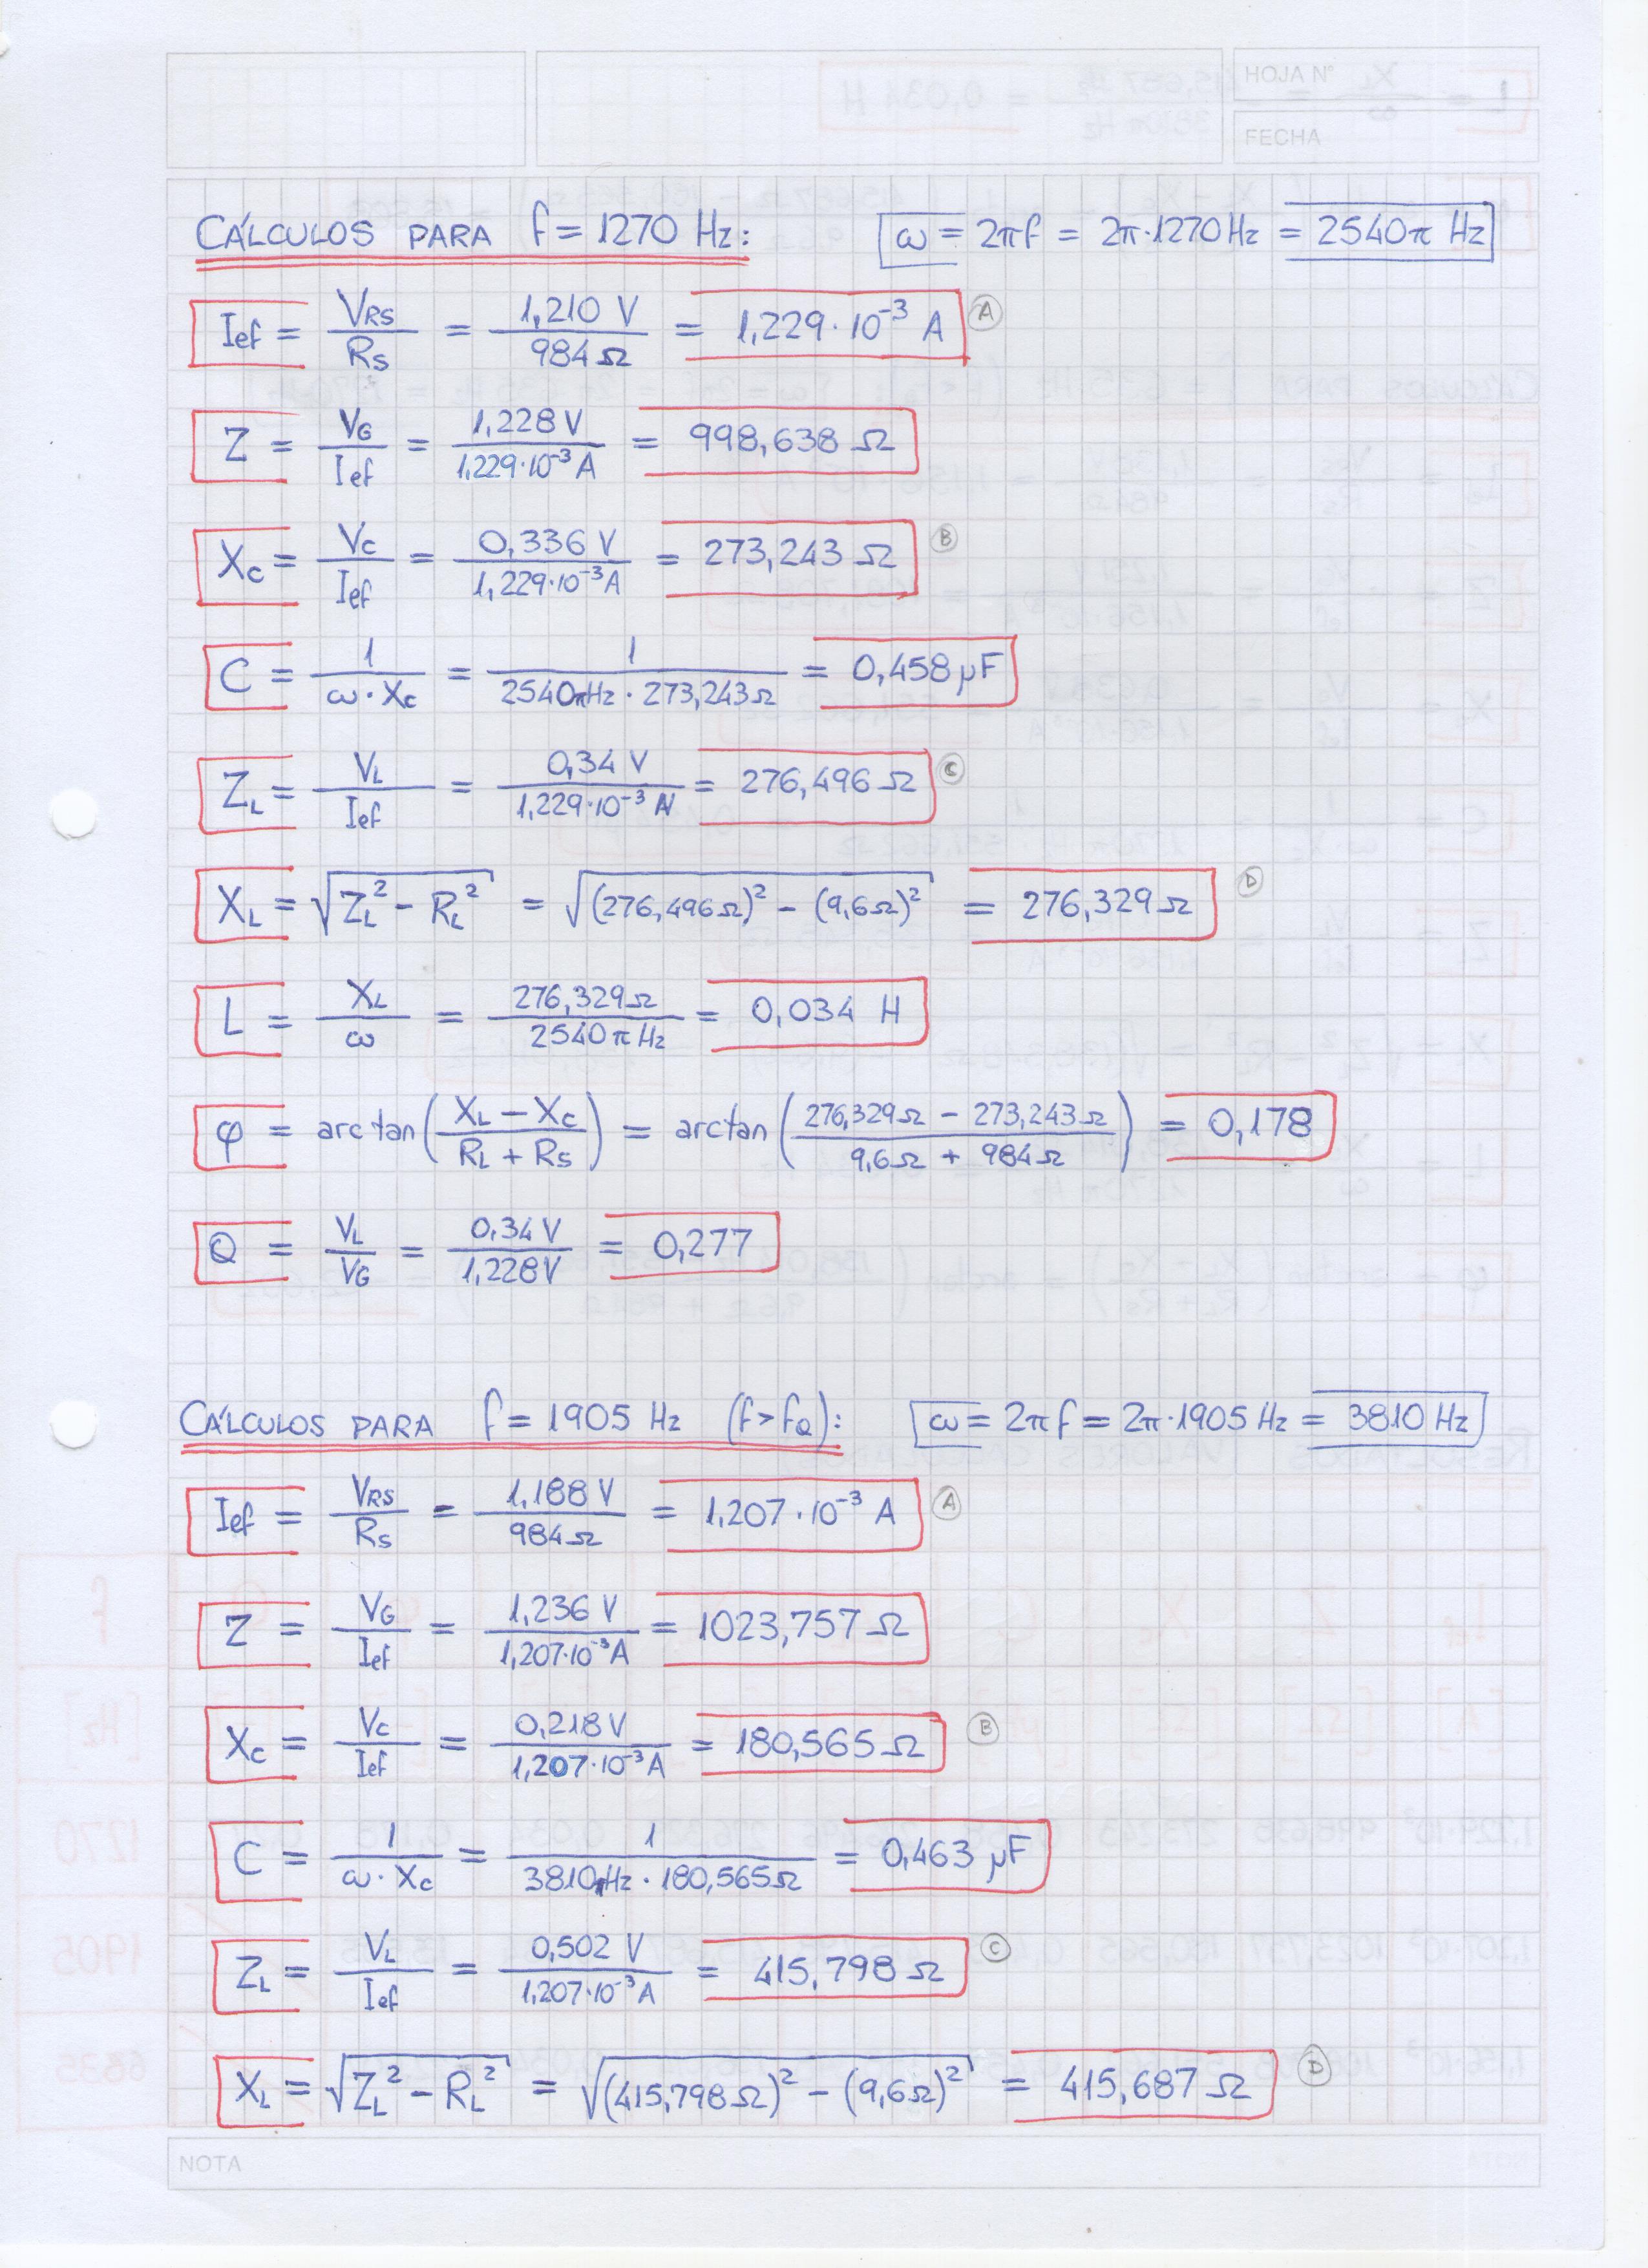 HOJA Nº
FECHA
CÁLCULOS PARA f = 1270 Hz: ω = 2πf = 2π·1270Hz = 2540π Hz
Ief = VRS / RS = 1,210 V / 984Ω = 1,229·10⁻³ A Ⓐ
Z = VG / Ief = 1,228 V / 1,229·10⁻³A = 998,638 Ω
XC = VC / Ief = 0,336 V / 1,229·10⁻³A = 273,243 Ω Ⓑ
C = 1 / ω·XC = 1 / 2540πHz · 273,243Ω = 0,458 μF
ZL = VL / Ief = 0,34 V / 1,229·10⁻³ A = 276,496 Ω Ⓒ
XL = √(ZL² - RL²) = √((276,496Ω)² - (9,6Ω)²) = 276,329Ω Ⓓ
L = XL / ω = 276,329Ω / 2540π Hz = 0,034 H
φ = arctan(XL - XC / RL + RS) = arctan(276,329Ω - 273,243Ω / 9,6Ω + 984Ω) = 0,178
Q = VL / VG = 0,34 V / 1,228V = 0,277
CÁLCULOS PARA f = 1905 Hz (f > fQ): ω = 2πf = 2π·1905 Hz = 3810 Hz
Ief = VRS / RS = 1,188 V / 984Ω = 1,207·10⁻³ A Ⓐ
Z = VG / Ief = 1,236 V / 1,207·10⁻³A = 1023,757 Ω
XC = VC / Ief = 0,218V / 1,207·10⁻³A = 180,565 Ω Ⓑ
C = 1 / ω·XC = 1 / 3810πHz · 180,565Ω = 0,463 μF
ZL = VL / Ief = 0,502 V / 1,207·10⁻³A = 415,798 Ω Ⓒ
XL = √(ZL² - RL²) = √((415,798Ω)² - (9,6Ω)²) = 415,687 Ω Ⓓ
NOTA